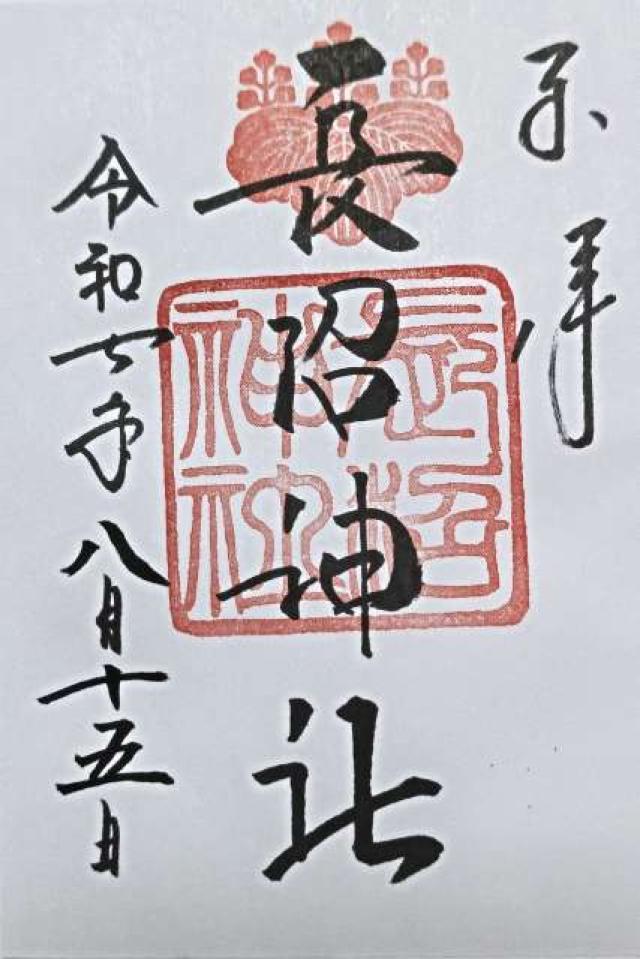 奉拝
長沼神社
長沼神社
令和七年八月十五日